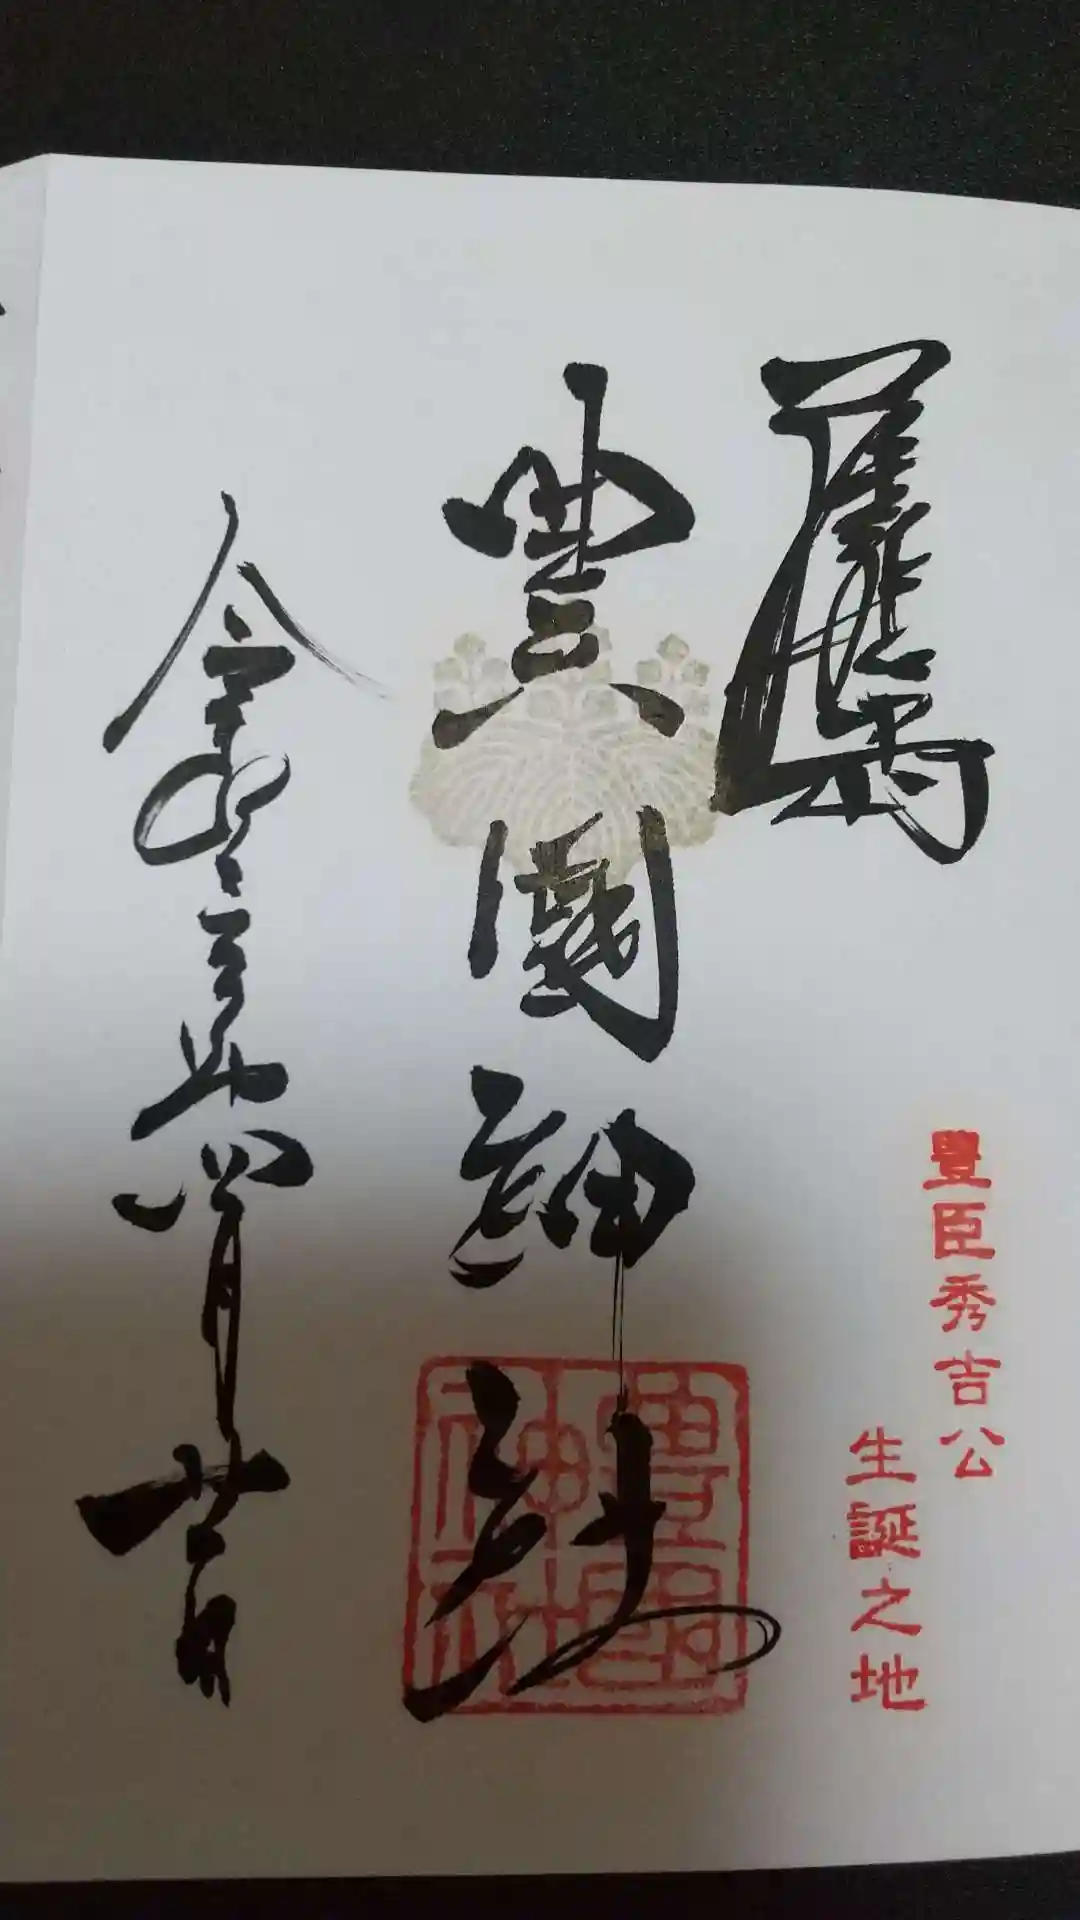 豊臣秀吉公
生誕之地
豊國神社
豊國神社
令和三年四月廿一日